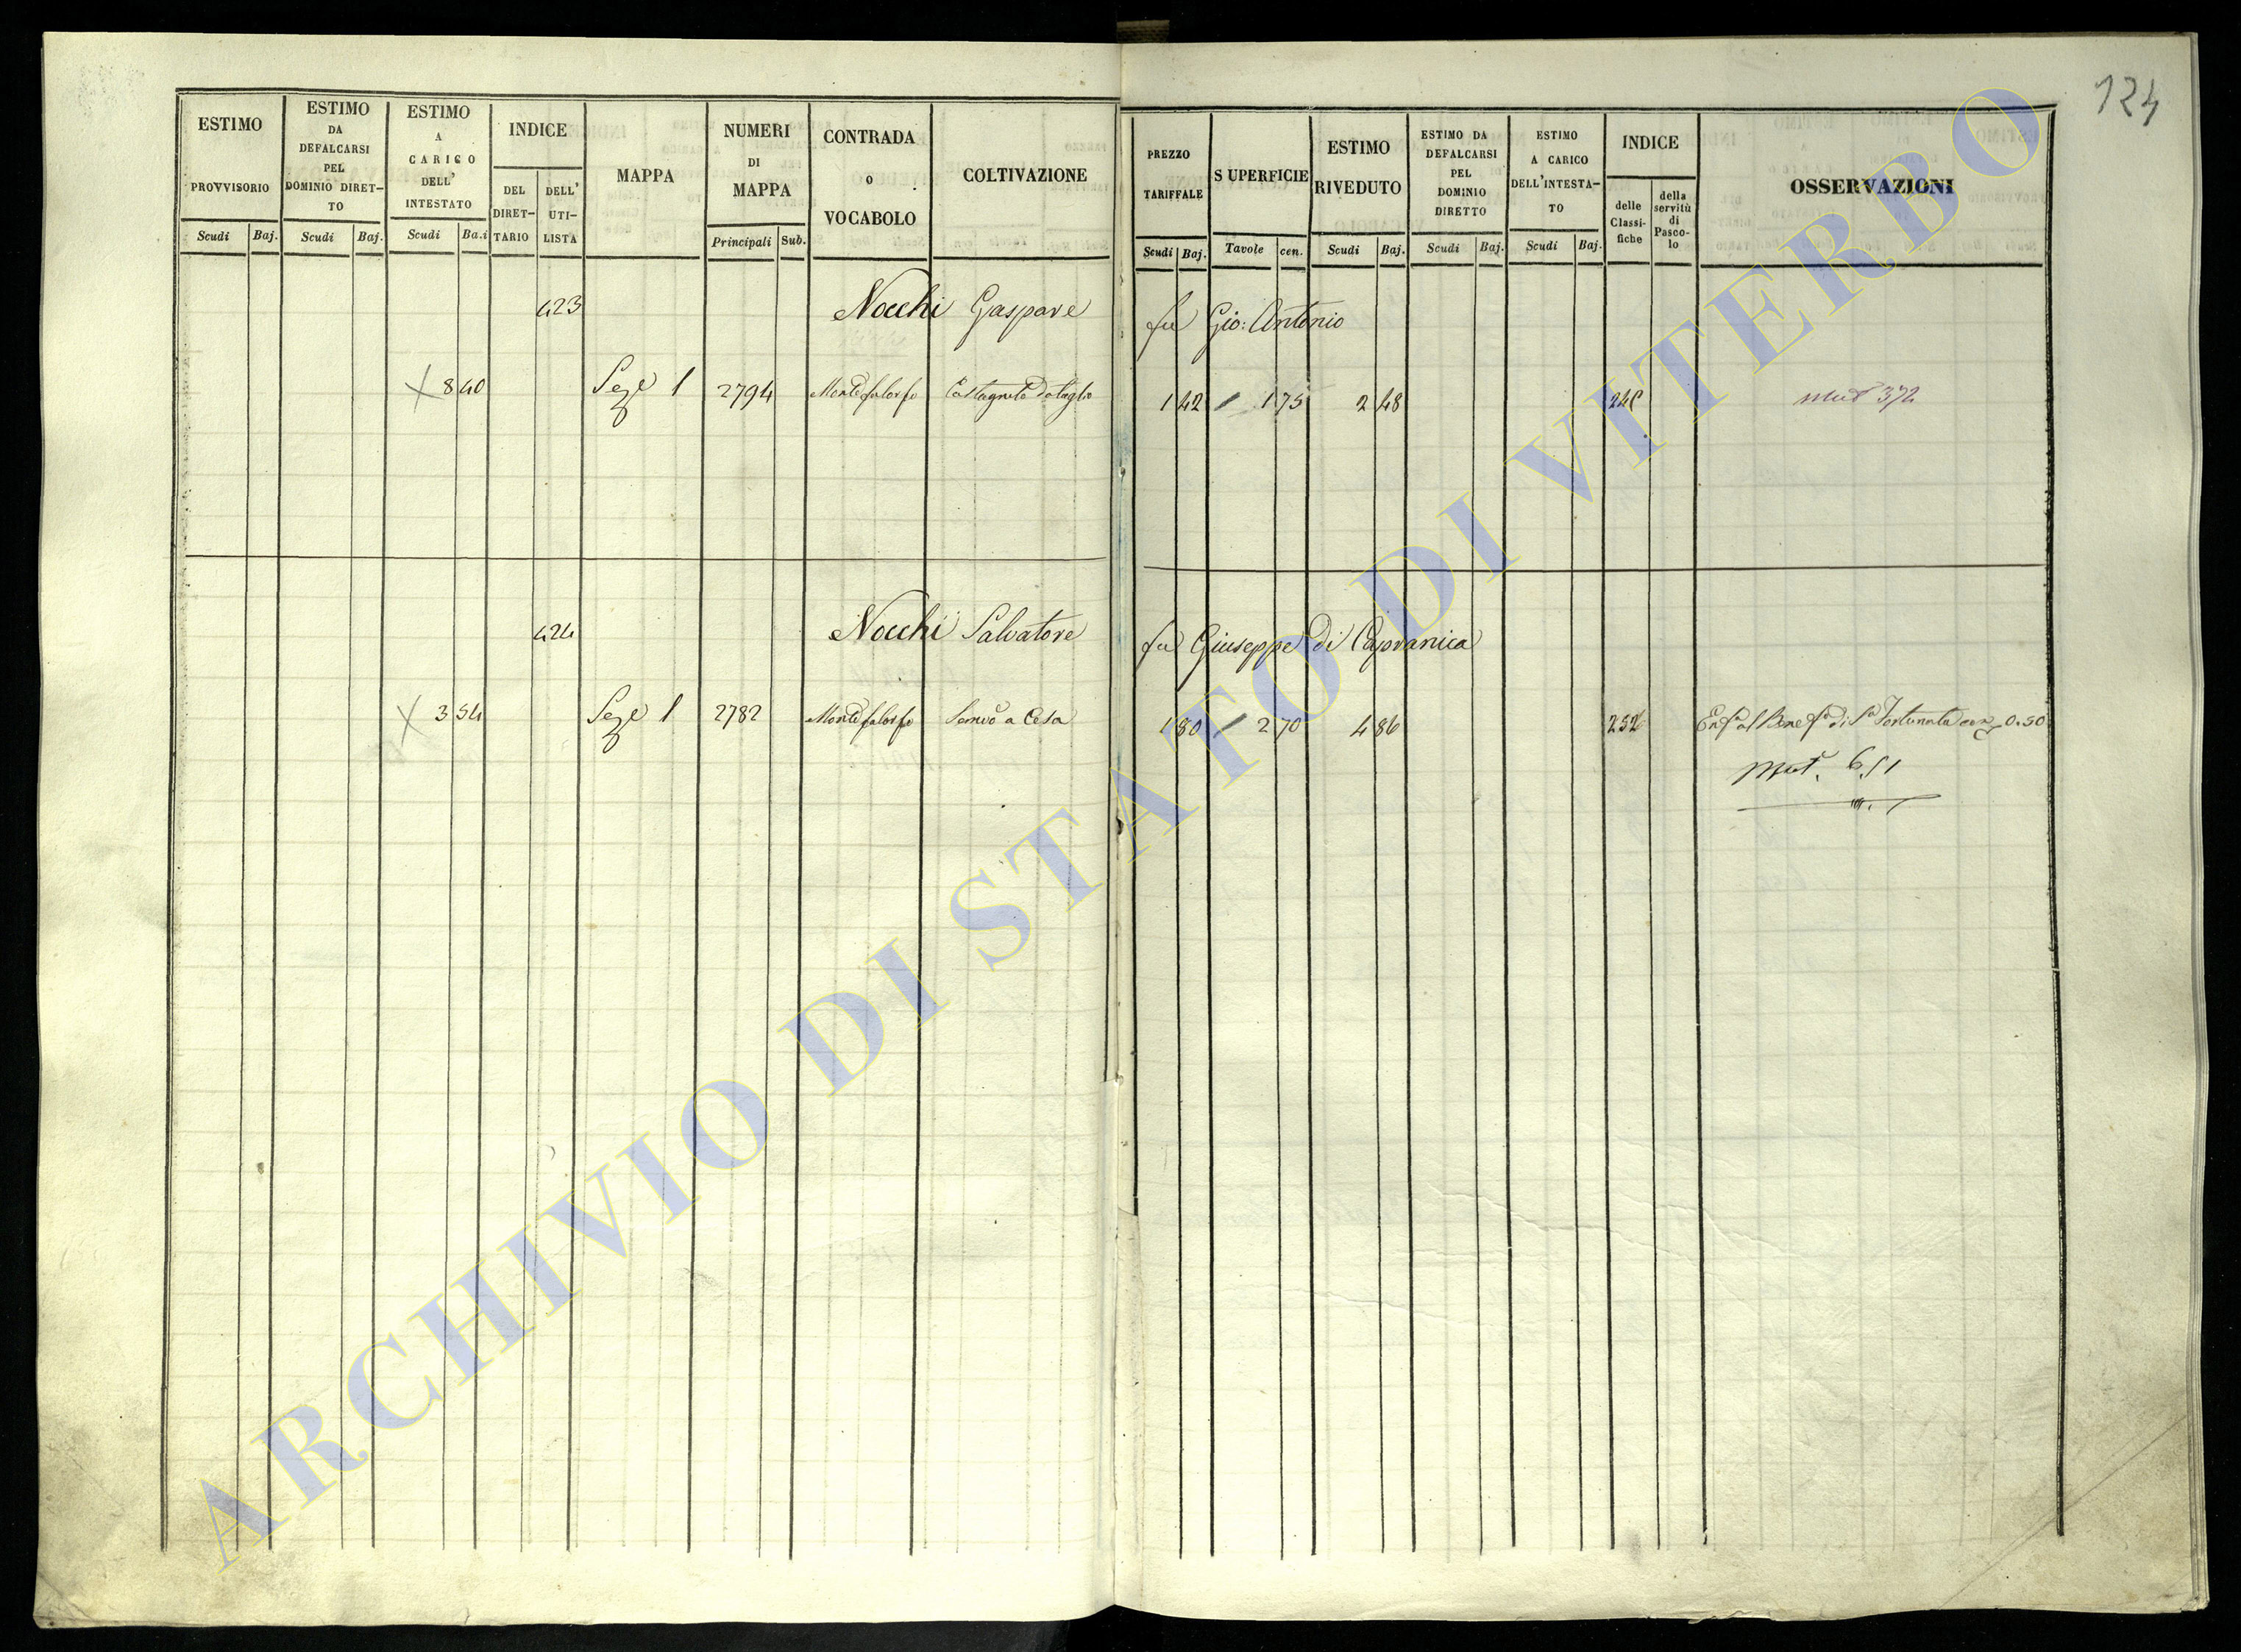 124
ESTIMO PROVVISORIO
Scudi Baj.
ESTIMO DA DEFALCARSI PEL DOMINIO DIRET-TO
Scudi Baj.
ESTIMO A CARICO DELL' INTESTATO
Scudi Ba.i
INDICE
DEL DIRET-TARIO
DELL' UTI-LISTA
MAPPA
NUMERI DI MAPPA
Principali Sub.
CONTRADA O VOCABOLO
COLTIVAZIONE
PREZZO TARIFFALE
Scudi Baj.
SUPERFICIE
Tavole cen.
ESTIMO RIVEDUTO
Scudi Baj.
ESTIMO DA DEFALCARSI PEL DOMINIO DIRETTO
Scudi Baj.
ESTIMO A CARICO DELL'INTESTA-TO
Scudi Baj.
INDICE
delle Classi-fiche
della servitù di Pasco-lo
OSSERVAZIONI
423 Nocchi Gaspare fu Gio: Antonio
8 40 Seze 1 2794 Castagneto da taglio 1 42 / 1 75 2 48 Mut 372
424 Nocchi Salvatore fu Giuseppe di Capranica
3 54 Seze 1 2782 a Cesa 1 80 / 2 70 4 86 252 0.50
Mut. 651
ARCHIVIO DI STATO DI VITERBO